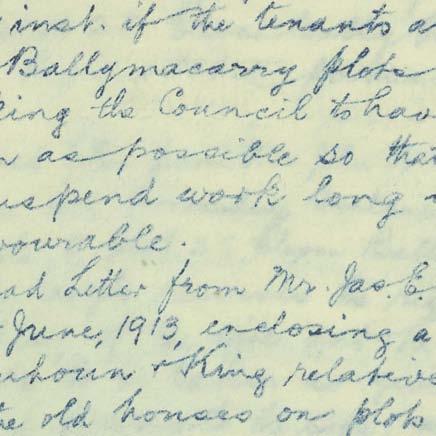 inst. if the tenants a
Ballymacarry plots
king the Council to hav
n as possible so that
uspend work long
vourable.
ad Letter from Mr. Jas. E.
June, 1913, enclosing a
lhoun & King relative
he old houses on plots